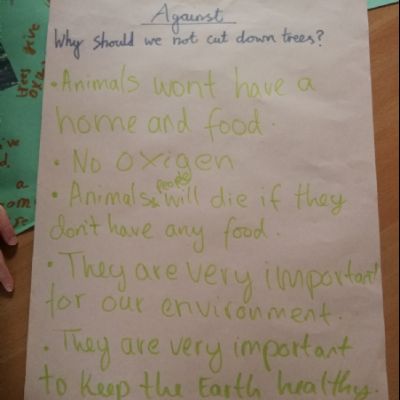 Against
Why should we not cut down trees?
• Animals wont have a
home and food.
• No oxigen
• Animals & people will die if they
don't have any food.
• They are very important
for our environment.
• They are very important
to keep the Earth healthy.
trees give